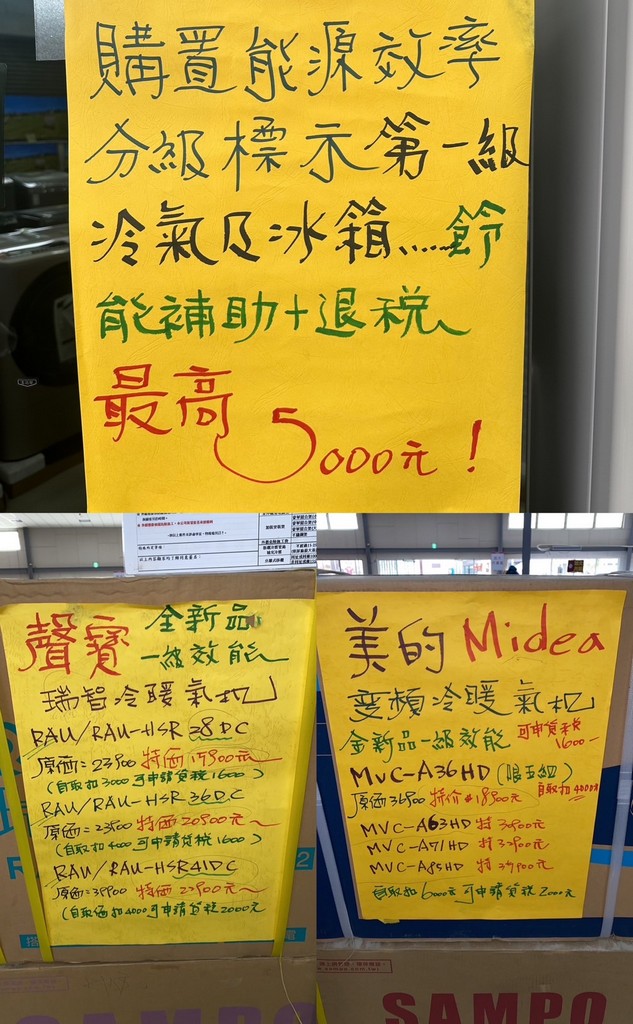 購置能源效率
分級標示第一級
冷氣及冰箱......節
能補助+退稅
最高
5000元！
聲寶 全新品
一級效能
瑞智冷暖氣机
RAU/RAU-HSR 38DC
原価=23900 特価 17900元~
(自取扣3000可申請貨稅1600)
RAU/RAU-HSR 36DC
原価=23900 特価 20900元~
(自取扣4000可申請貨稅1600)
RAU/RAU-HSR41DC
原価=39900 特価 23900元~
(自取価扣4000可申請貨稅2000元
美的 Midea
変頻冷暖氣机
全新品一級效能
可申貨稅
1600-
MVC-A36HD
原価36900 特价 18900元
自取扣4000元
MVC-A63HD 特 30900元
MVC-A71HD 特 33900元
MVC-A85HD 特 39900元
自取扣6000元可申請貨稅2000元
SAMPO
SAMPO